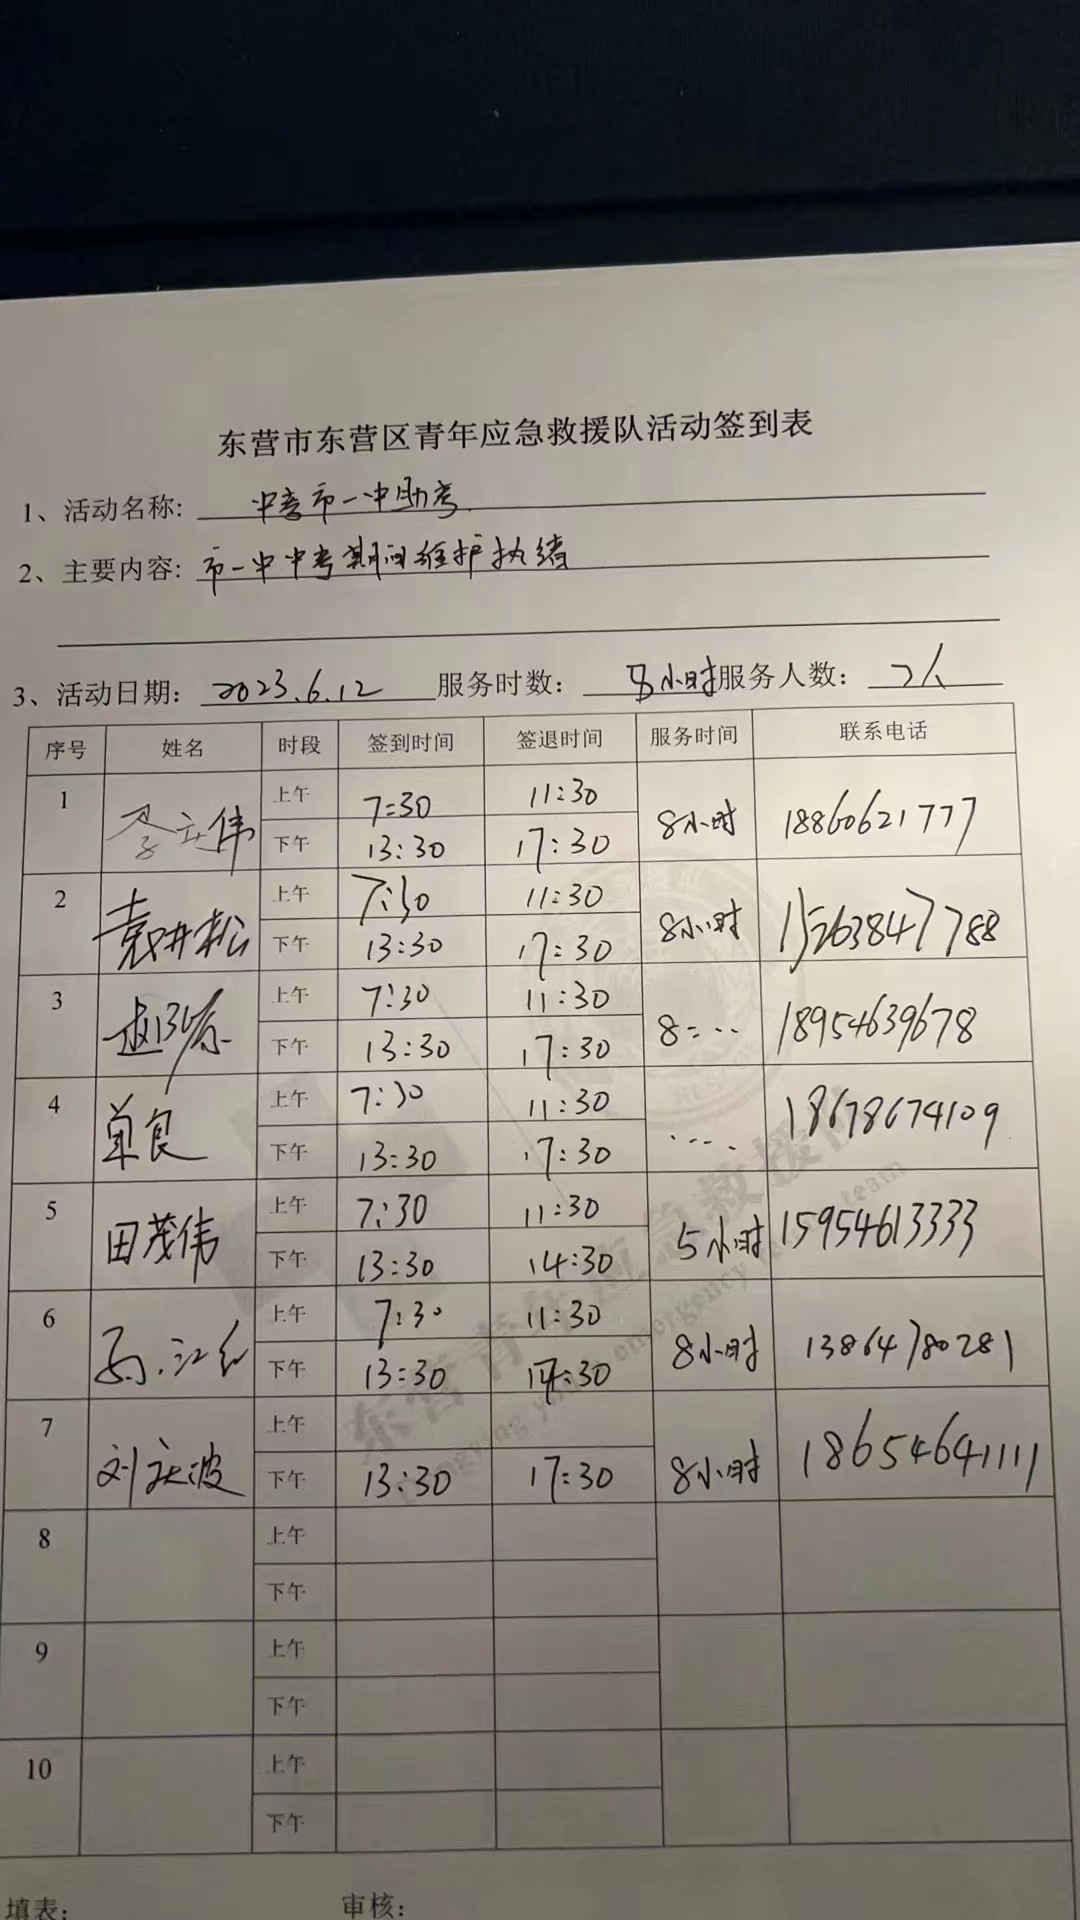 东营市东营区青年应急救援队活动签到表
1、活动名称: 中考市一中助考
2、主要内容: 市一中中考期间维护执绪
3、活动日期: 2023.6.12 服务时数: 8小时 服务人数: 7人
序号 姓名 时段 签到时间 签退时间 服务时间 联系电话
1 李立伟 上午 7:30 11:30 8小时 18860621777
下午 13:30 17:30
2 袁井松 上午 7:30 11:30 8小时 15263847788
下午 13:30 17:30
3 赵 上午 7:30 11:30 8 18954639678
下午 13:30 17:30
4 单良 上午 7:30 11:30 18678674109
下午 13:30 17:30
5 田茂伟 上午 7:30 11:30 5小时 15954613333
下午 13:30 14:30
6 江红 上午 7:30 11:30 8小时 13864780281
下午 13:30 17:30
7 刘 波 上午 8小时 18654641111
下午 13:30 17:30
8 上午
下午
9 上午
下午
10 上午
下午
填表: 审核:
东营青年应急救援
emergency team